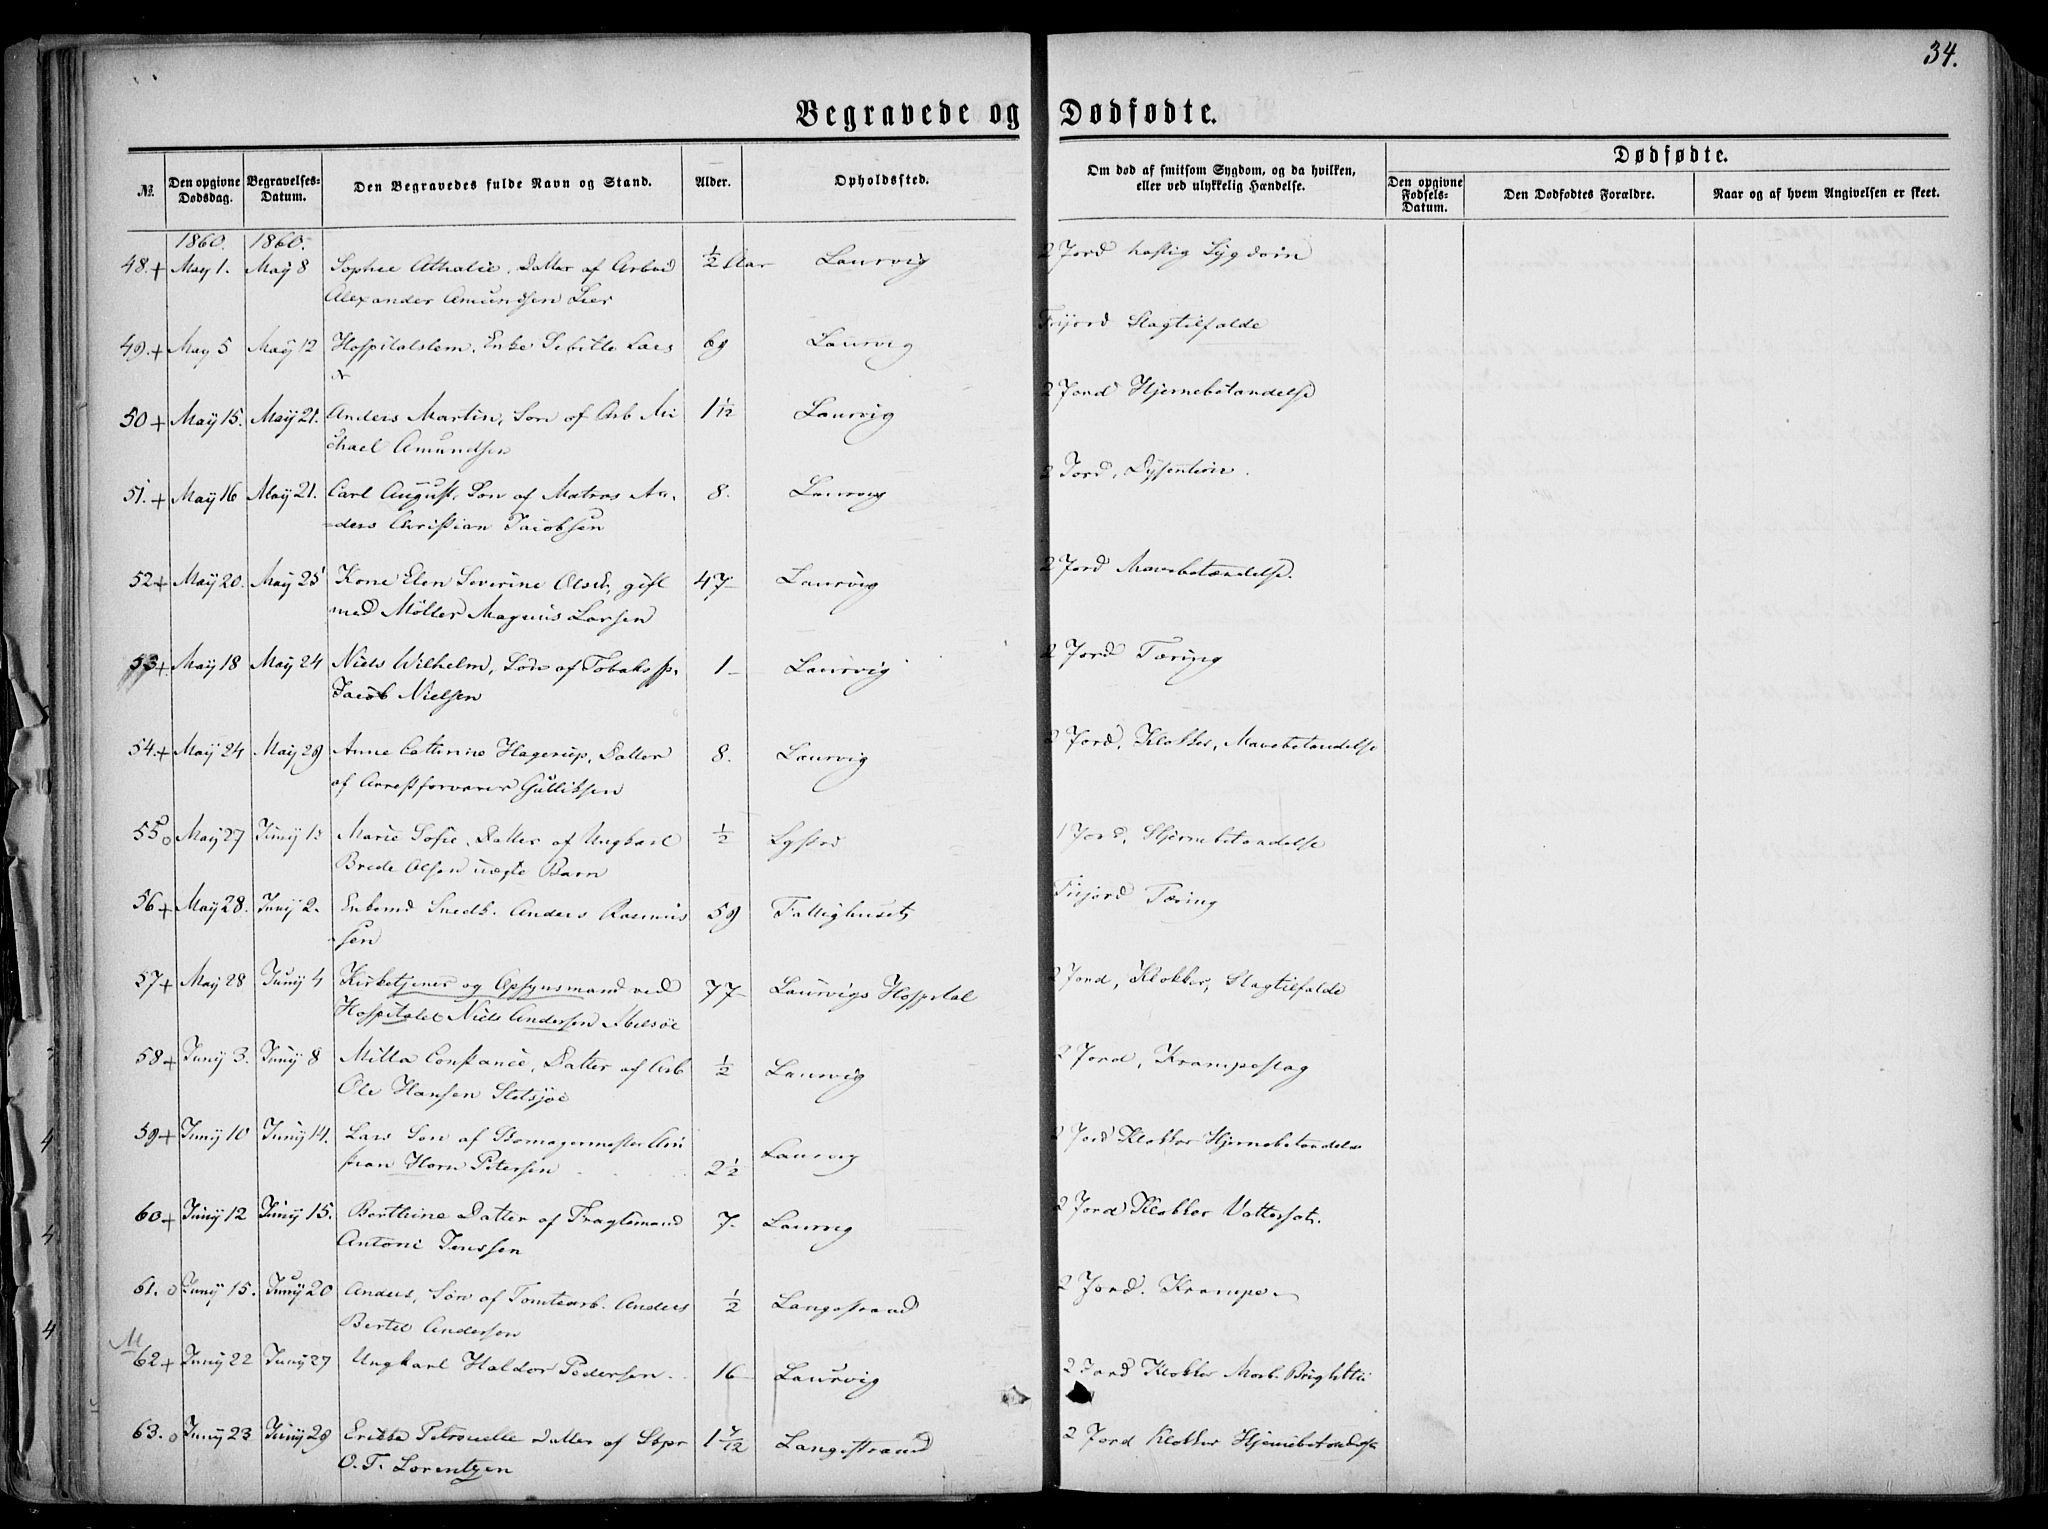 34.
Begravede og Dødfødte.
№.
Den opgivne Dødsdag.
Begravelses-Datum.
Den Begravedes fulde Navn og Stand.
Alder.
Opholdssted.
Om død af smitsom Sygdom, og da hvilken, eller ved ulykkelig Hændelse.
Dødfødte.
Den opgivne Fødsels-Datum.
Den Dødfødtes Forældre.
Naar og af hvem Angivelsen er skeet.
1860. 1860.
48. + May 1. May 8 Sophie Athalie, Datter af Arbeid ½ Aar Laurvig 2 Jord hastig Sygdom
Alexander Amundsen Lier
49. + May 5 May 12 Hospitalslem, Enke Sibille Lars 69 Laurvig Frijord Slagtilfælde
50 + May 15. May 21. Anders Martin, Søn af Arb Mi 1 1/12 Laurvig 2 Jord Hjernebetændelse
chael Amundsen
51. + May 16 May 21. Carl August, Søn af Matros An- 8. Laurvig 2 Jord, Dysenterie.
=ders Christian Jacobsen
52 + May 20. May 25 Kone Elen Severine Olsd., gift 47 Laurvig 2 Jord Mavebetændelse.
med Møller Magnus Larsen
53 + May 18 May 24 Niels Wilhelm, Søn af Tobakssp. 1 Laurvig 2 Jord Tæring
Jacob Nielsen
54. + May 24 May 29 Anne Catterine Hagerup, Datter 8. Laurvig 2 Jord, Klokker, Mavebetændelse
af Arrestforvarer Gulliksen
55 o May 27 Juny 1 Marie Sofie, Datter af Ungkarl ½ 1 Jord, Hjernebetændelse
Brede Olsen uægte Barn
56 + May 28. Juny 2. Enkemd Snedk. Anders Rasmus 59 Fattighuset Frijord Tæring
-sen
57 + May 28 Juny 4 Kirketjener og Opsynsmand ved 77 Laurvigs Hospital 2 Jord, Klokker, Slagtilfælde
Hospitalet Niels Andersen
58 + Juny 3. Juny 8 Milla Constance, Datter af Arb ½ Laurvig 2 Jord, Krampeslag
Ole Hansen
59 + Juny 10 Juny 14. Lars Søn af 2½ Laurvig 2 Jord Klokker Hjernebetændelse
stian Horn Petersen
60 + Juny 12 Juny 15. Berthine Datter af Fragtemand 7. Laurvig 2 Jord Klokker Vattersot.
Antoni Jenssen
61. o Juny 15. Juny 20 Anders, Søn af Tomtearb. Anders ½ Langestrand 2 Jord. Krampe
Bertel Andersen
M
62 + Juny 22 Juny 27 Ungkarl Haldor Pedersen 16 Laurvig 2 Jord Klokker Morb. Brightii
63. o Juny 23 Juny 29 Petronelle Datter af Skpr 1 7/12 Langestrand 2 Jord Klokker Hjernebetændelse
O. T. Lorentzen